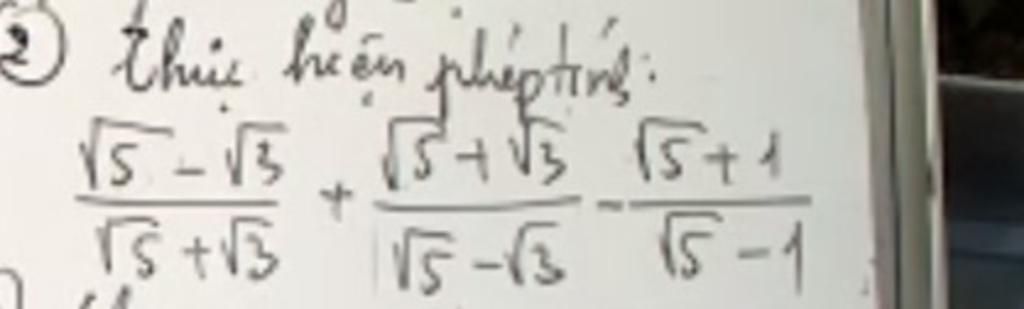 ② thực hiện phép tính:
\frac{\sqrt{5}-\sqrt{3}}{\sqrt{5}+\sqrt{3}} + \frac{\sqrt{5}+\sqrt{3}}{\sqrt{5}-\sqrt{3}} - \frac{\sqrt{5}+1}{\sqrt{5}-1}